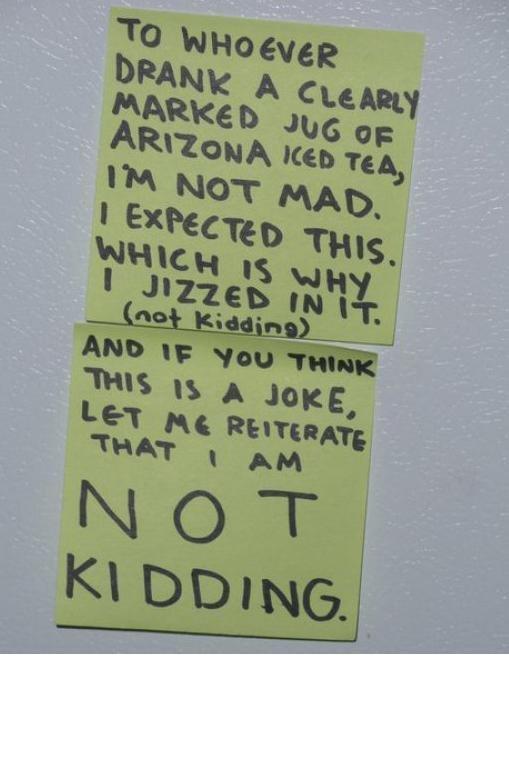 TO WHOEVER
DRANK A CLEARLY
MARKED JUG OF
ARIZONA ICED TEA,
I'M NOT MAD.
I EXPECTED THIS.
WHICH IS WHY
I JIZZED IN IT.
(not Kidding)
AND IF YOU THINK
THIS IS A JOKE,
LET ME REITERATE
THAT I AM
NOT
KIDDING.